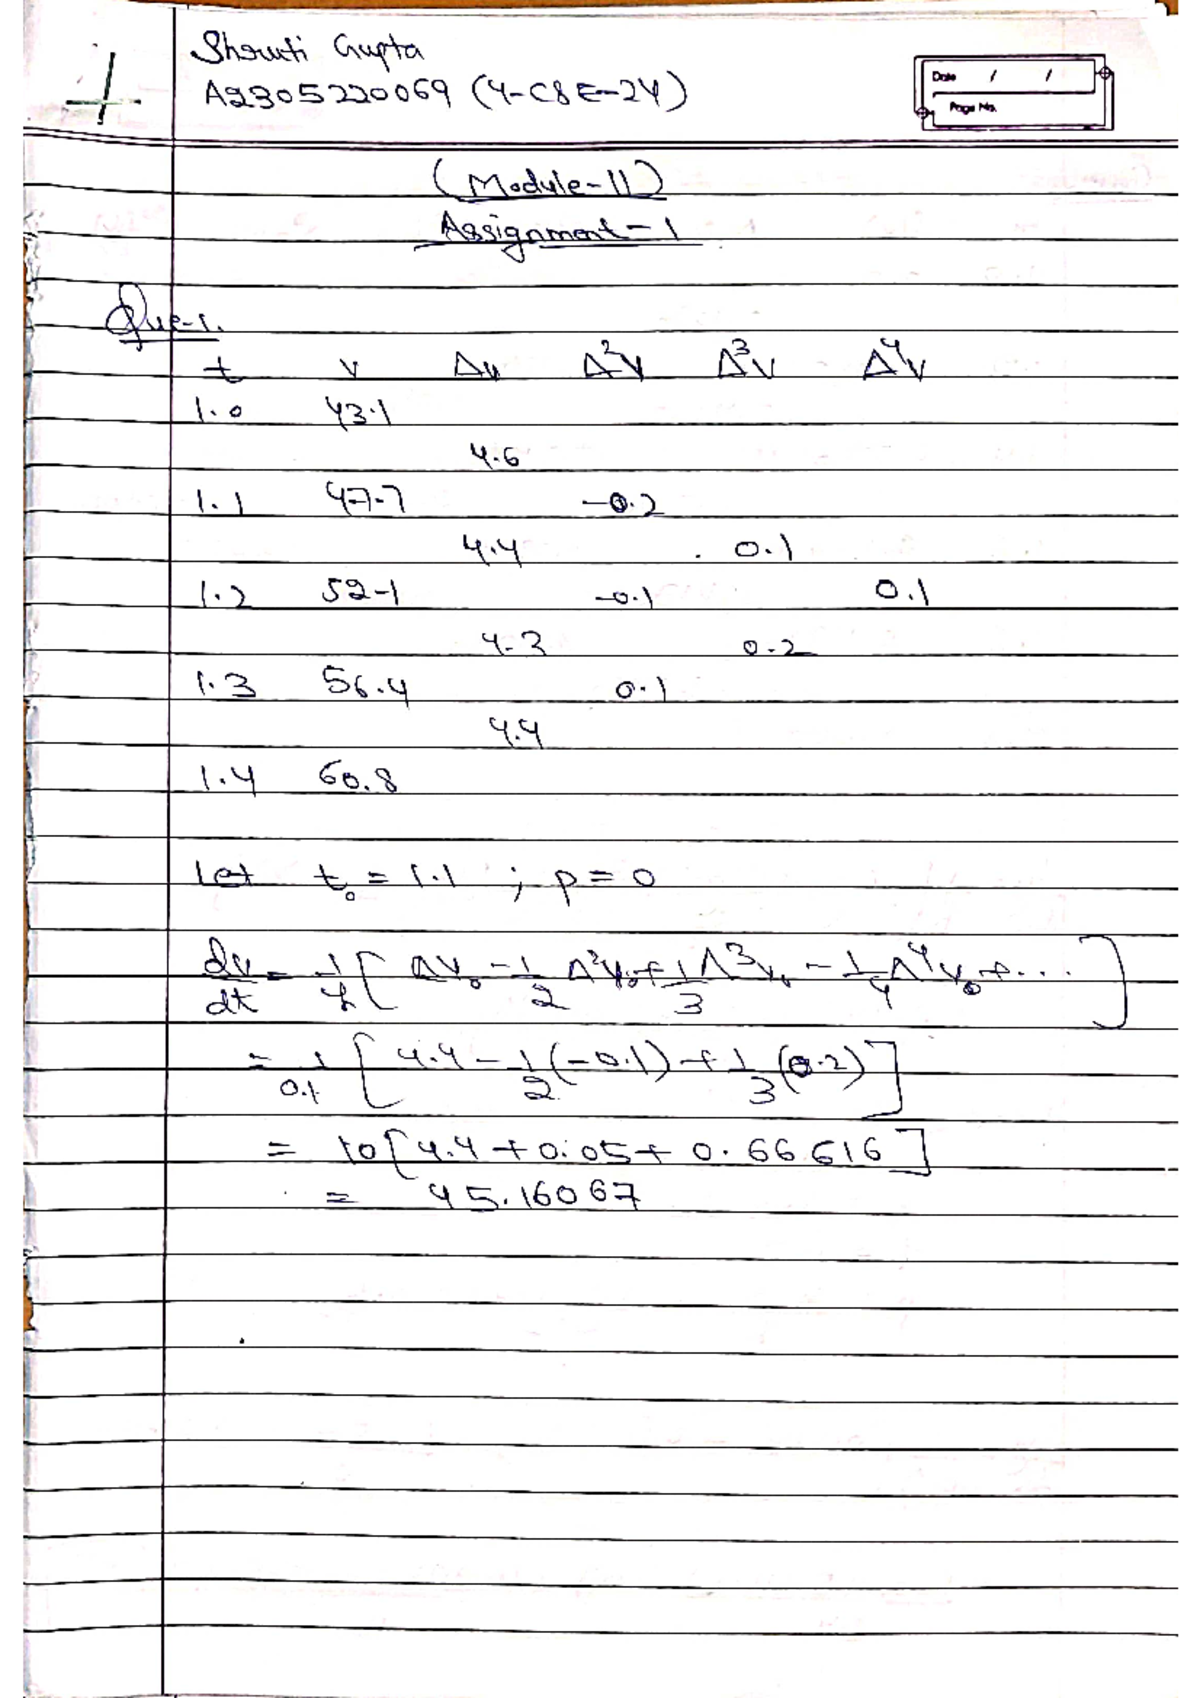 Shruti Gupta
A2305220069 (4-CSE-2Y)
Date / /
Page No.
(Module-II)
Assignment-1
Que-1.
t v Δv Δ²v Δ³v Δ⁴v
1.0 43.1
4.6
1.1 47.7 -0.2
4.4 0.1
1.2 52.1 -0.1 0.1
4.3 0.2
1.3 56.4 0.1
4.4
1.4 60.8
Let t₀ = 1.1 ; p = 0
dv/dt = 1/h [Δv₀ - 1/2 Δ²v₀ + 1/3 Δ³v₀ - 1/4 Δ⁴v₀ + ....]
= 1/0.1 [4.4 - 1/2 (-0.1) + 1/3 (0.2)]
= 10 [4.4 + 0.05 + 0.66616]
= 45.16067